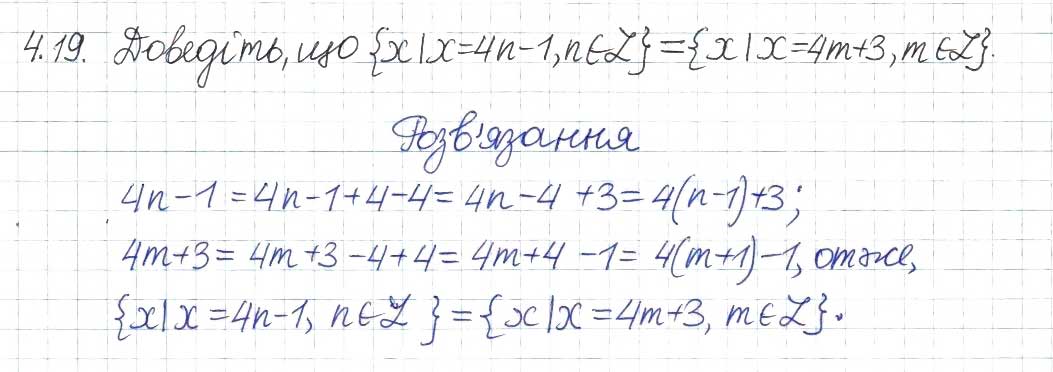 4.19. Доведіть, що {x|x=4n-1, n∈Z}={x|x=4m+3, m∈Z}.
Розв'язання
4n-1=4n-1+4-4=4n-4+3=4(n-1)+3;
4m+3=4m+3-4+4=4m+4-1=4(m+1)-1, отже,
{x|x=4n-1, n∈Z}={x|x=4m+3, m∈Z}.